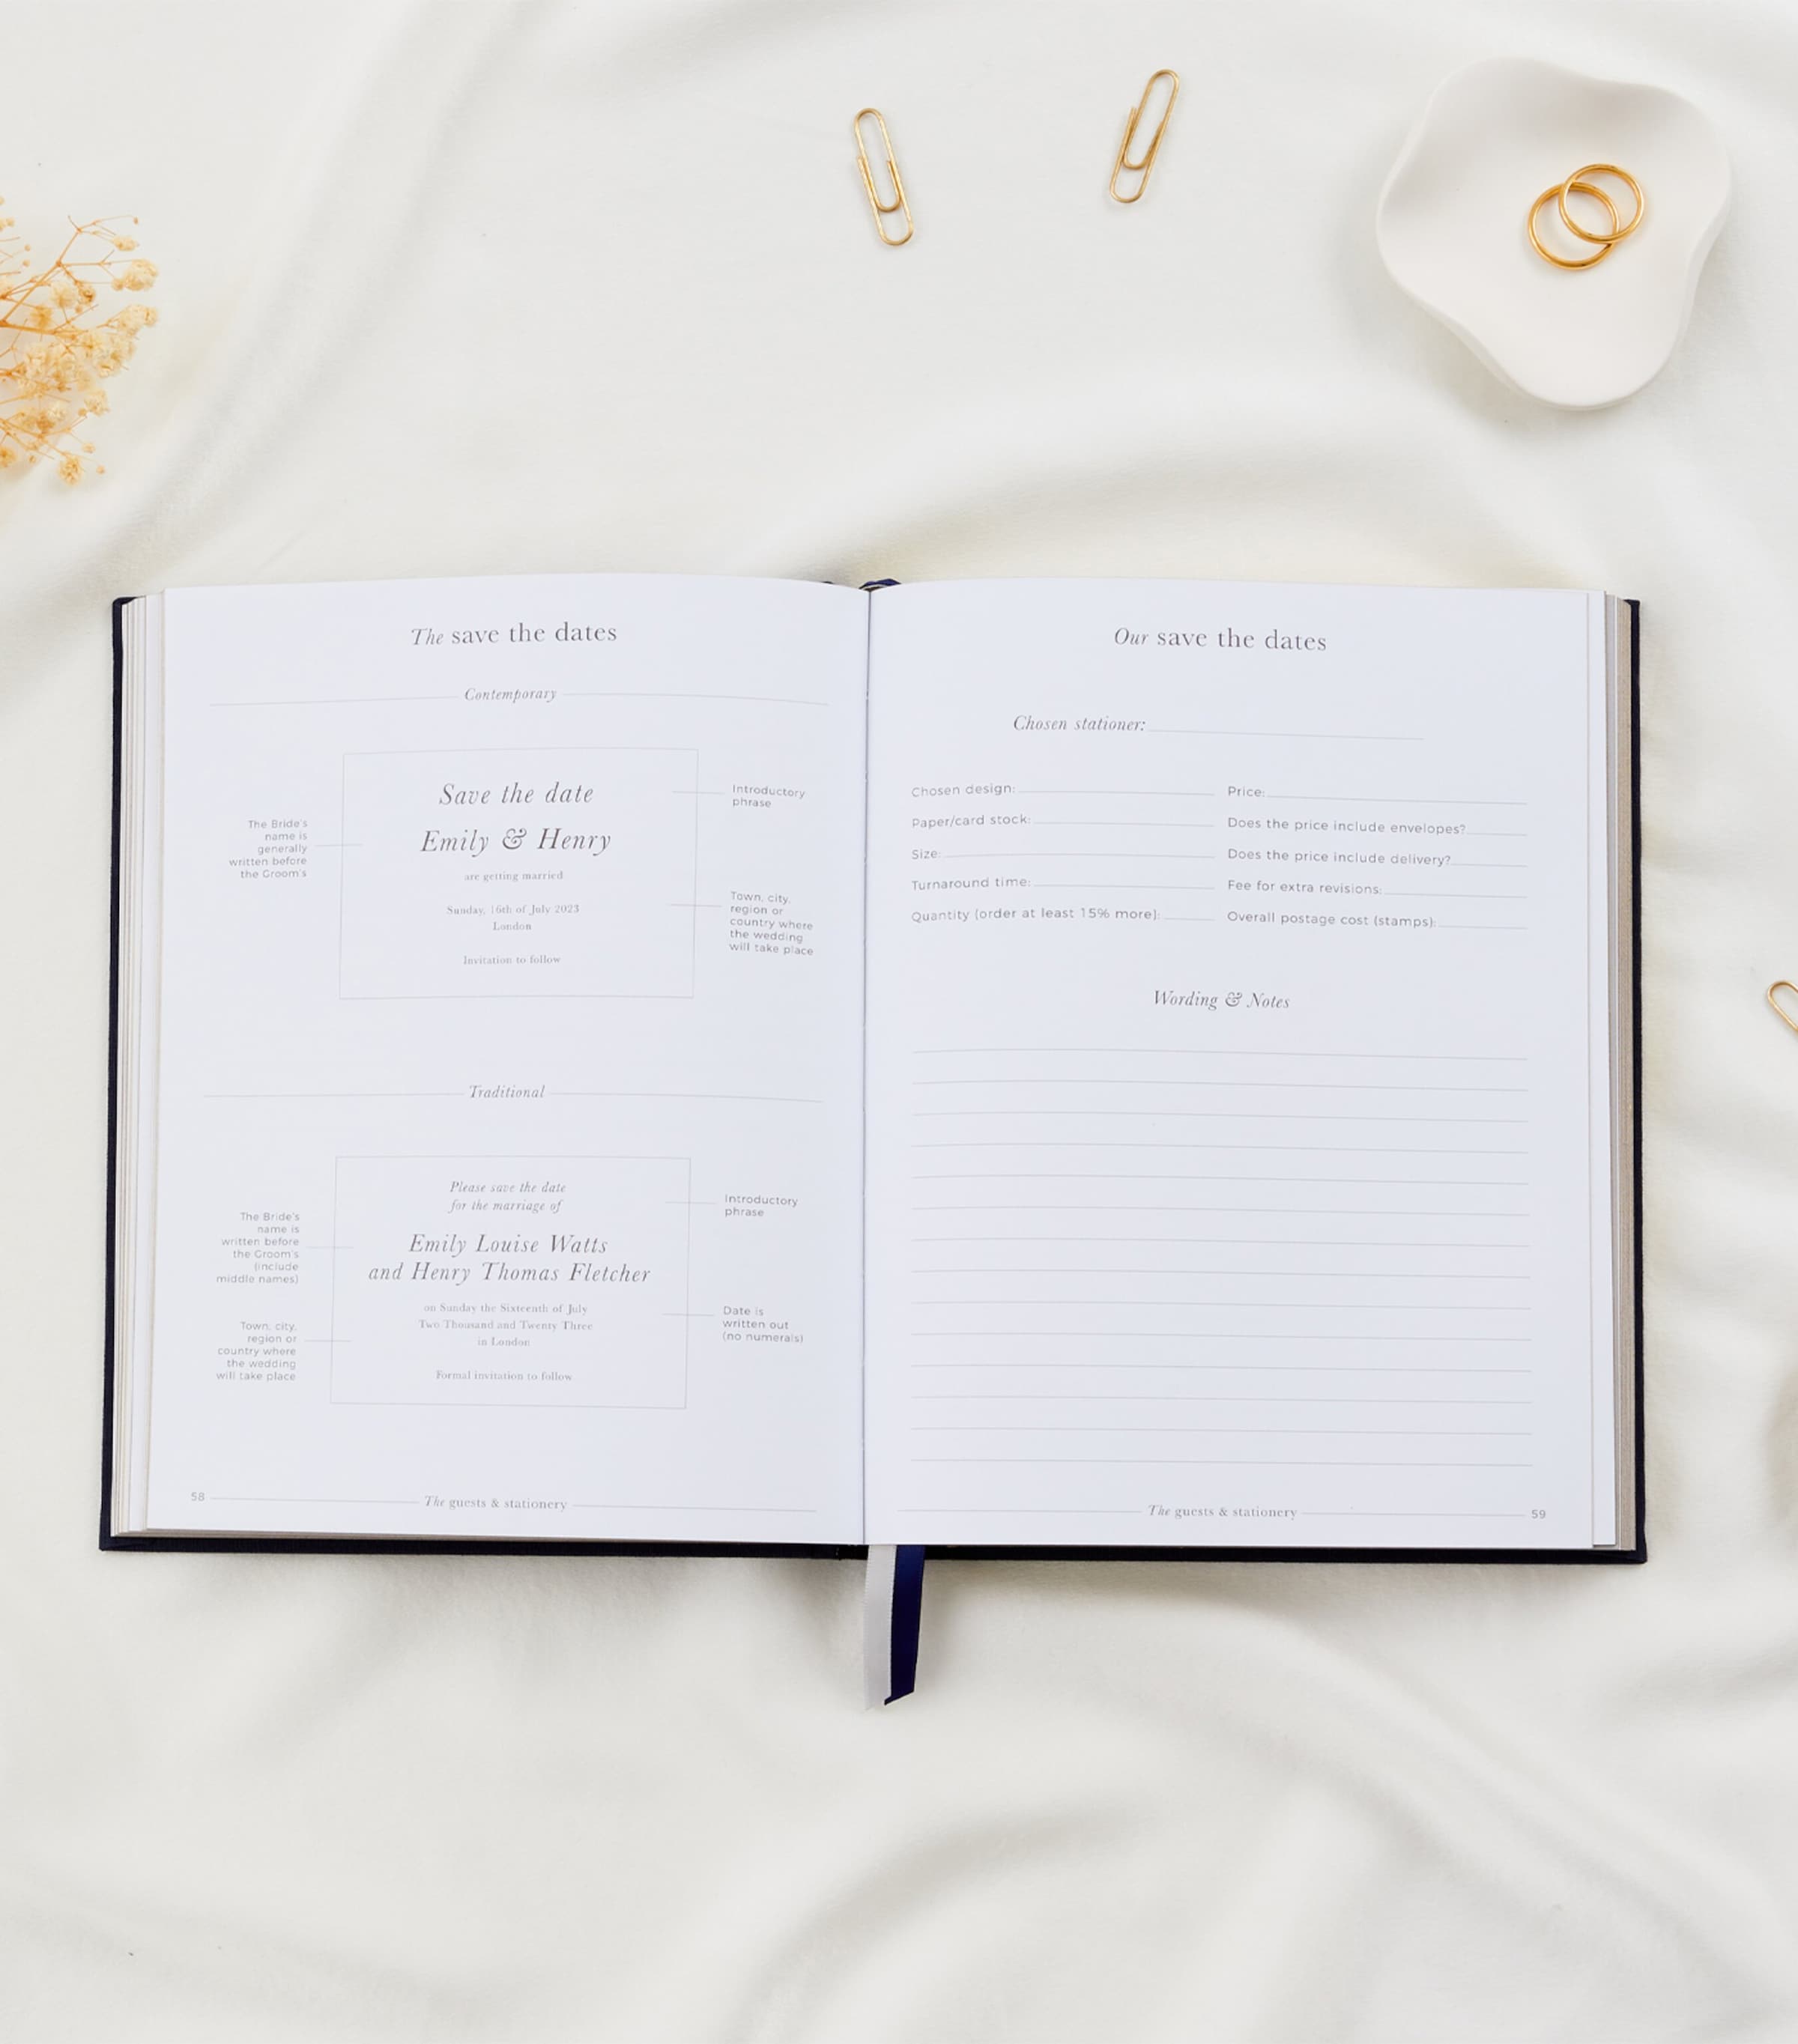 The save the dates
Contemporary
Save the date
Emily & Henry
are getting married
Sunday, 16th of July 2023
London
Invitation to follow
The Bride's
name is
generally
written before
the Groom's
Introductory
phrase
Town, city,
region or
country where
the wedding
will take place
Traditional
Please save the date
for the marriage of
Emily Louise Watts
and Henry Thomas Fletcher
on Sunday the Sixteenth of July
Two Thousand and Twenty Three
in London
Formal invitation to follow
The Bride's
name is
written before
the Groom's
(include
middle names)
Town, city,
region or
country where
the wedding
will take place
Introductory
phrase
Date is
written out
(no numerals)
58
The guests & stationery
Our save the dates
Chosen stationer:
Chosen design:
Paper/card stock:
Size:
Turnaround time:
Quantity (order at least 15% more):
Price:
Does the price include envelopes?
Does the price include delivery?
Fee for extra revisions:
Overall postage cost (stamps):
Wording & Notes
The guests & stationery
59